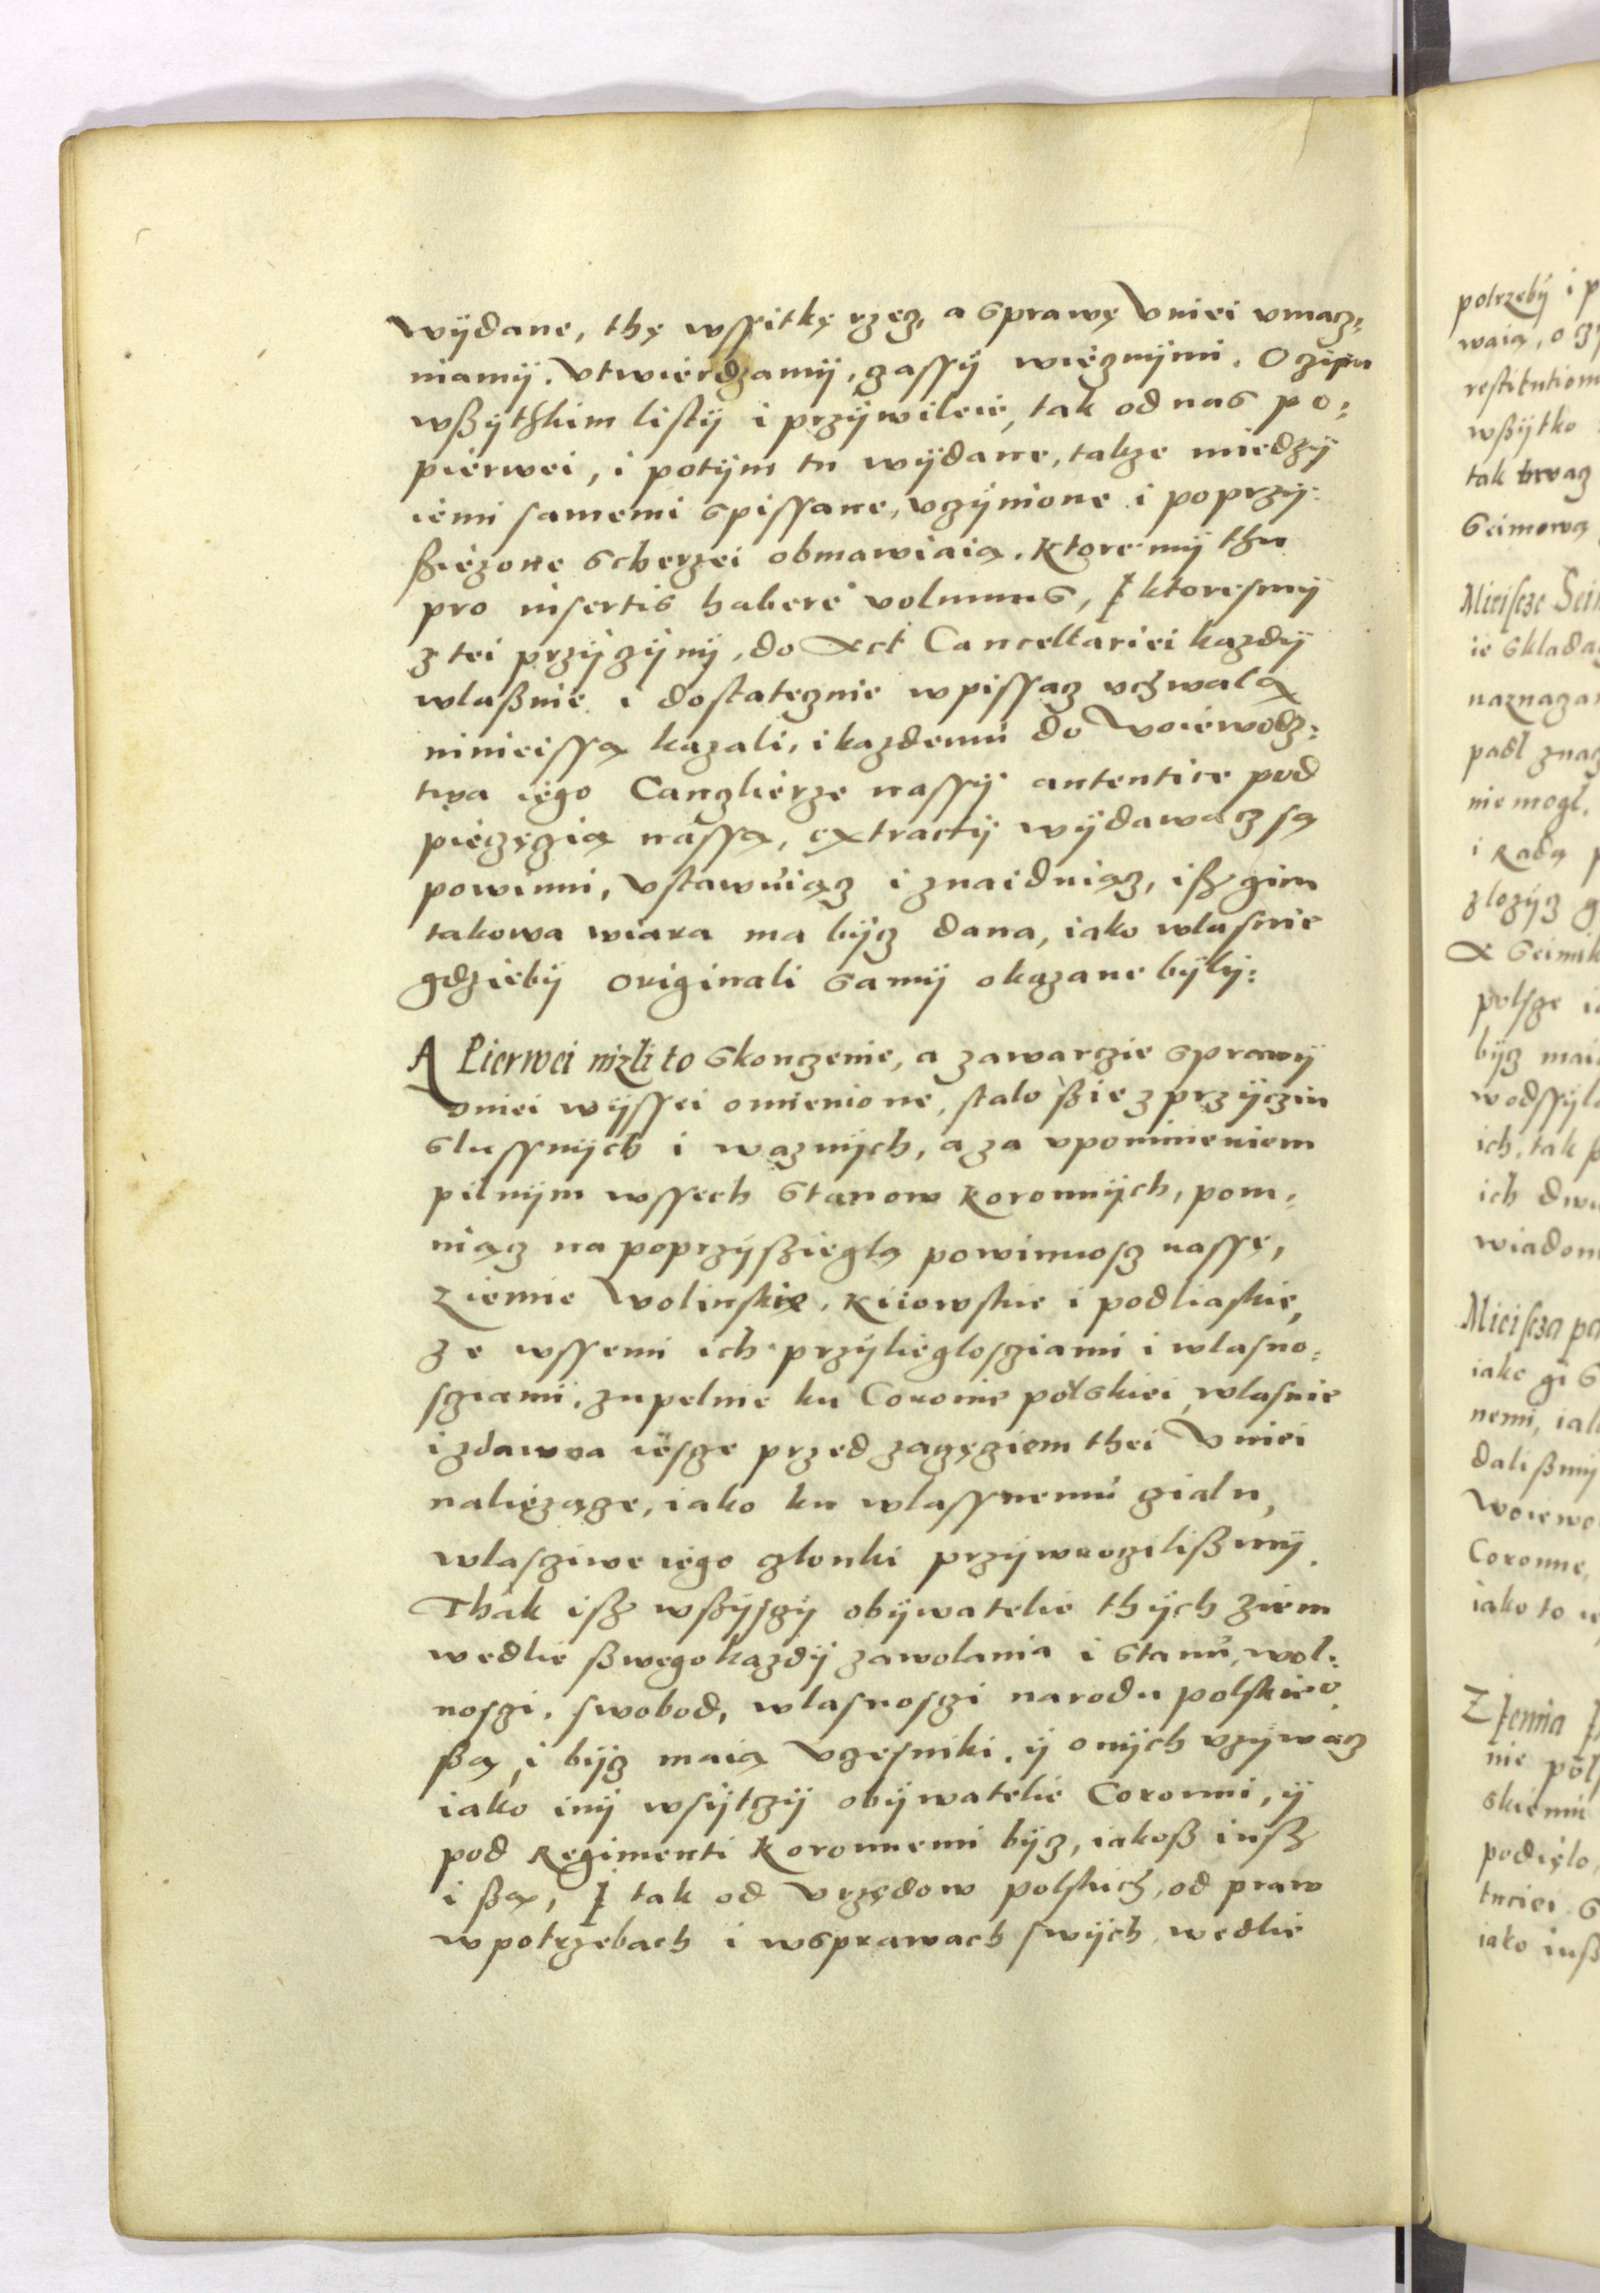 wÿdane, thę wssitkę rzecz, a sprawę Vniei vmacz=
niamÿ. Vtwierdzamÿ, czassÿ wiecznÿmi. O czim
wßÿthkim listÿ i przÿwileie, tak od nas po=
pierwei, i potÿm tu wÿdane, takze miedzÿ
iemi samemi spissane, vczÿnione i poprzÿ=
sziężone scherzei obmawiaią. Ktore mÿ thu
pro insertis habere volumus, I ktoresmÿ
z tei przÿczÿnÿ, do Act Cancellariei kazdÿ
wlaßnie i dostatecznie wpissacz vchwalą
ninieissą kazali, i kazdemu do Woiewodz=
twa iego Canczlierze nassÿ autentice pod
pieczęczią nassą, extractÿ wÿdawacz są
powinni, vstawuiącz i znaiduiącz, isz gim
takowa wiara ma bÿcz dana, iako wlasnie
gdziebÿ originali samÿ okazane bÿlÿ:
A Pierwei nizli to skonczenie, a zawarczie sprawÿ
vniei wÿssei omienione, stalo szie z przÿczin
slussnÿch i waznÿch, a za vpominieniem
pilnÿm wssech stanow koronnÿch, pom=
niącz na poprzÿsziegłą powinnoscz nassę,
Ziemie Wolinskię, Kiiowskie i podliaskie,
ze wssemi ich przÿliegloscziami i wlasno=
scziamÿ, zupelnie ku Coronie polskiei wlasnie
i zdawna iescze przed zaczęcziem thei Vniei
należącze, iako ku wlassnemu czialu,
wlascziwe iego czlonki przÿwroczilißmÿ.
Thak isz wszÿsczÿ obÿwatelie thÿch ziem
wedlie szwego kazdÿ zawolania i stanu, wol=
nosczi, swobod, wlasnosczi narodu polskieo
szą, i bÿcz maią vczesniki, ÿ onÿch vzÿwacz
iako inÿ wsÿtczÿ obÿwatelie Coronni, ÿ
pod Regimenti Koronnemi bÿcz, iakosz iusz
i szą, I tak od Vrzędow polskich, od praw
w potrzebach i w sprawach swÿch, wedlie
potrzebÿ i p
waią, o cz
restitution
wßÿtko
tak trwacz
seimową
Mieisce Sei
ie sklada
naznacza
padl znac
nie mogl,
i Radą p
zlozÿcz g
A seimik
polscze i
bÿcz mai
wodssÿl
ich, tak p
ich dwu
wiadom
Mieiscza pa
iako gi s
nemi, iak
dalißmÿ
Woiewo
Coronne,
iako to i
Ziemia P
nie pol
skiemu
podięlo,
tuciei s
iako iusz